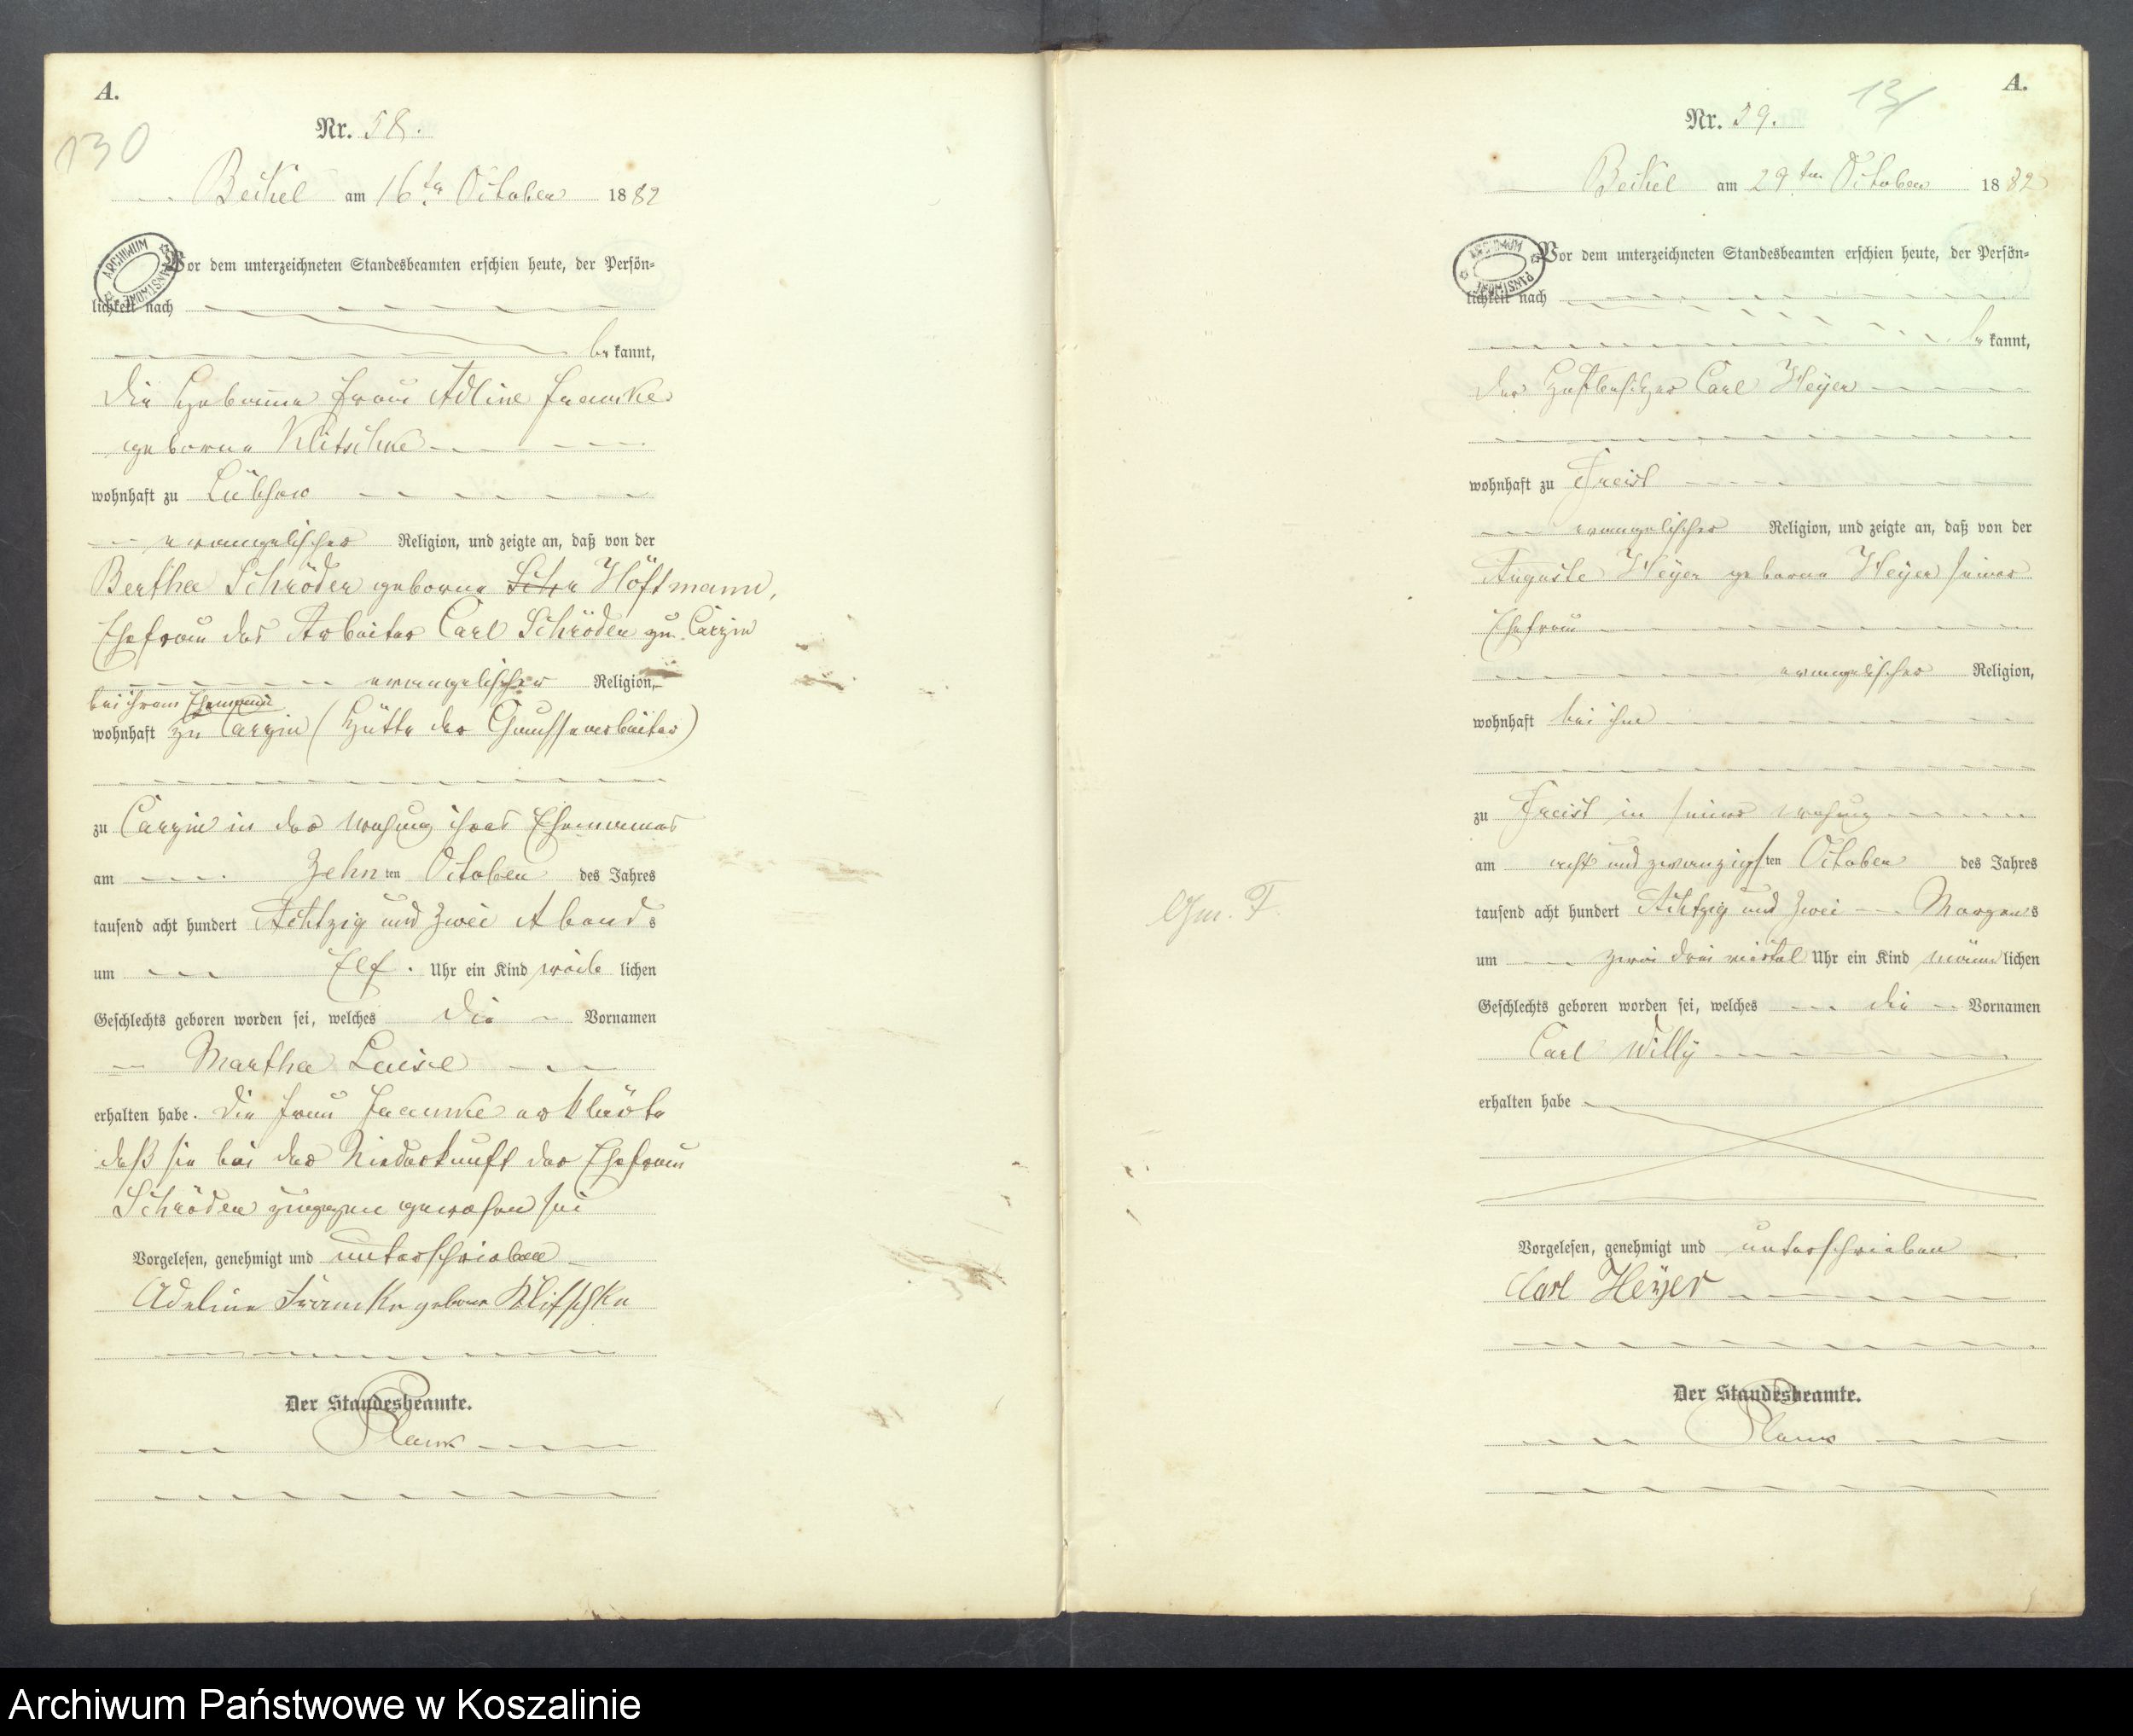 A.
130
Nr. 58.
Beikel am 16ten October 1882
ARCHIWUM PAŃSTWOWE
Vor dem unterzeichneten Standesbeamten erschien heute, der Persön=
lichkeit nach
be kannt,
die Hebamme Frau Adline Framke
geborne Klitschke
wohnhaft zu Lübzow
evangelischer Religion, und zeigte an, daß von der
Bertha Schröder geborne Höftmann,
Ehefrau des Arbeiter Carl Schröder zu Carzin
evangelischer Religion,
bei ihrem Ehemann
wohnhaft zu Carzin (Hütte der Chausseearbeiter)
zu Carzin in der Wohnung ihres Ehemannes
am Zehn ten October des Jahres
tausend acht hundert Achtzig und Zwei Abends
um Elf Uhr ein Kind weib lichen
Geschlechts geboren worden sei, welches die Vornamen
Martha Luise
erhalten habe. Die Frau Framke erklärte
daß sie bei der Niederkunft der Ehefrau
Schröder zugegen gewesen sei
Vorgelesen, genehmigt und unterschrieben
Adeline Framke geborne Klitschke
Der Standesbeamte.
A.
131
Nr. 59.
Beikel am 29ten October 1882
ARCHIWUM PAŃSTWOWE
Vor dem unterzeichneten Standesbeamten erschien heute, der Persön=
lichkeit nach
be kannt,
der Hofbesitzer Carl Heyer
wohnhaft zu Freist
evangelischer Religion, und zeigte an, daß von der
Auguste Heyer geborne Heyer seiner
Ehefrau
evangelischer Religion,
wohnhaft bei ihm
zu Freist in seiner Wohnung
am acht und zwanzigsten October des Jahres
tausend acht hundert Achtzig und Zwei Morgens
um zwei drei viertel Uhr ein Kind männ lichen
Geschlechts geboren worden sei, welches die Vornamen
Carl Willy
erhalten habe
Vorgelesen, genehmigt und unterschrieben
Carl Heyer
Der Standesbeamte.
Archiwum Państwowe w Koszalinie